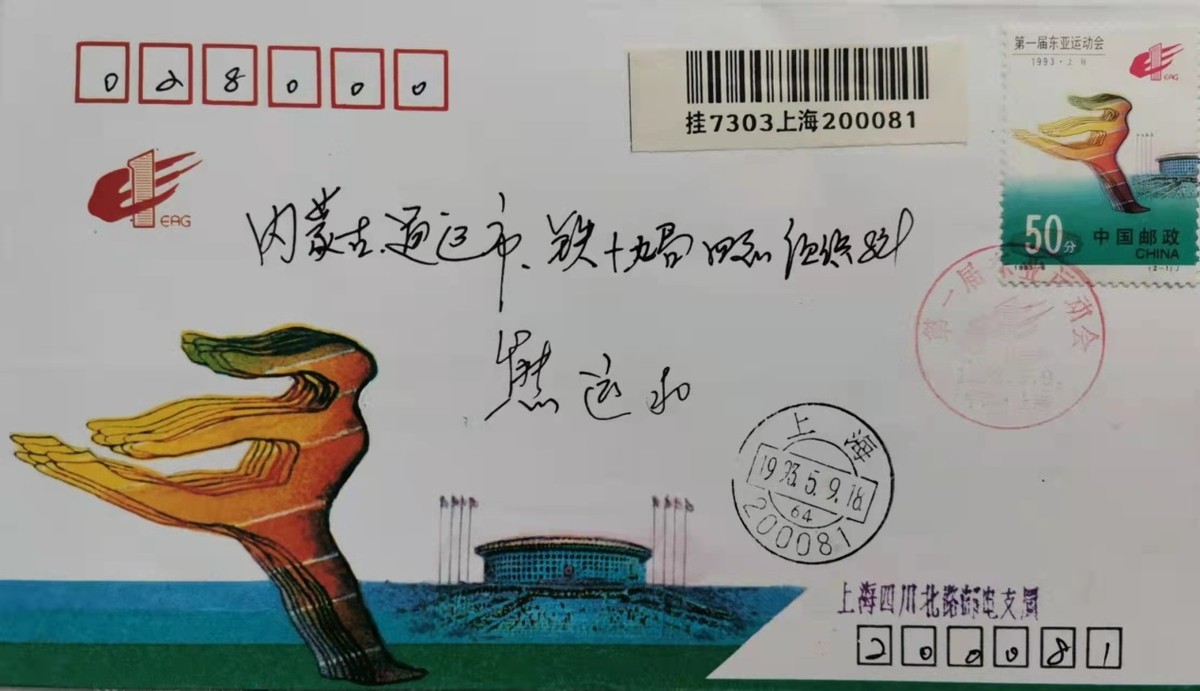 028000
挂7303上海200081
第一届东亚运动会
1993·上海
EAG
50分
中国邮政
CHINA
1993-6
(2-1)J
EAG
内蒙古通辽市、铁十九局四处
焦运
第一届东亚运动会
上海
1993.5.9.18
64
200081
上海四川北路邮电支局
200081